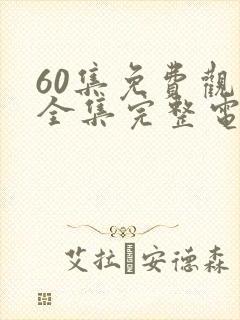 60集免費觀
全集完整電
艾拉·安德森